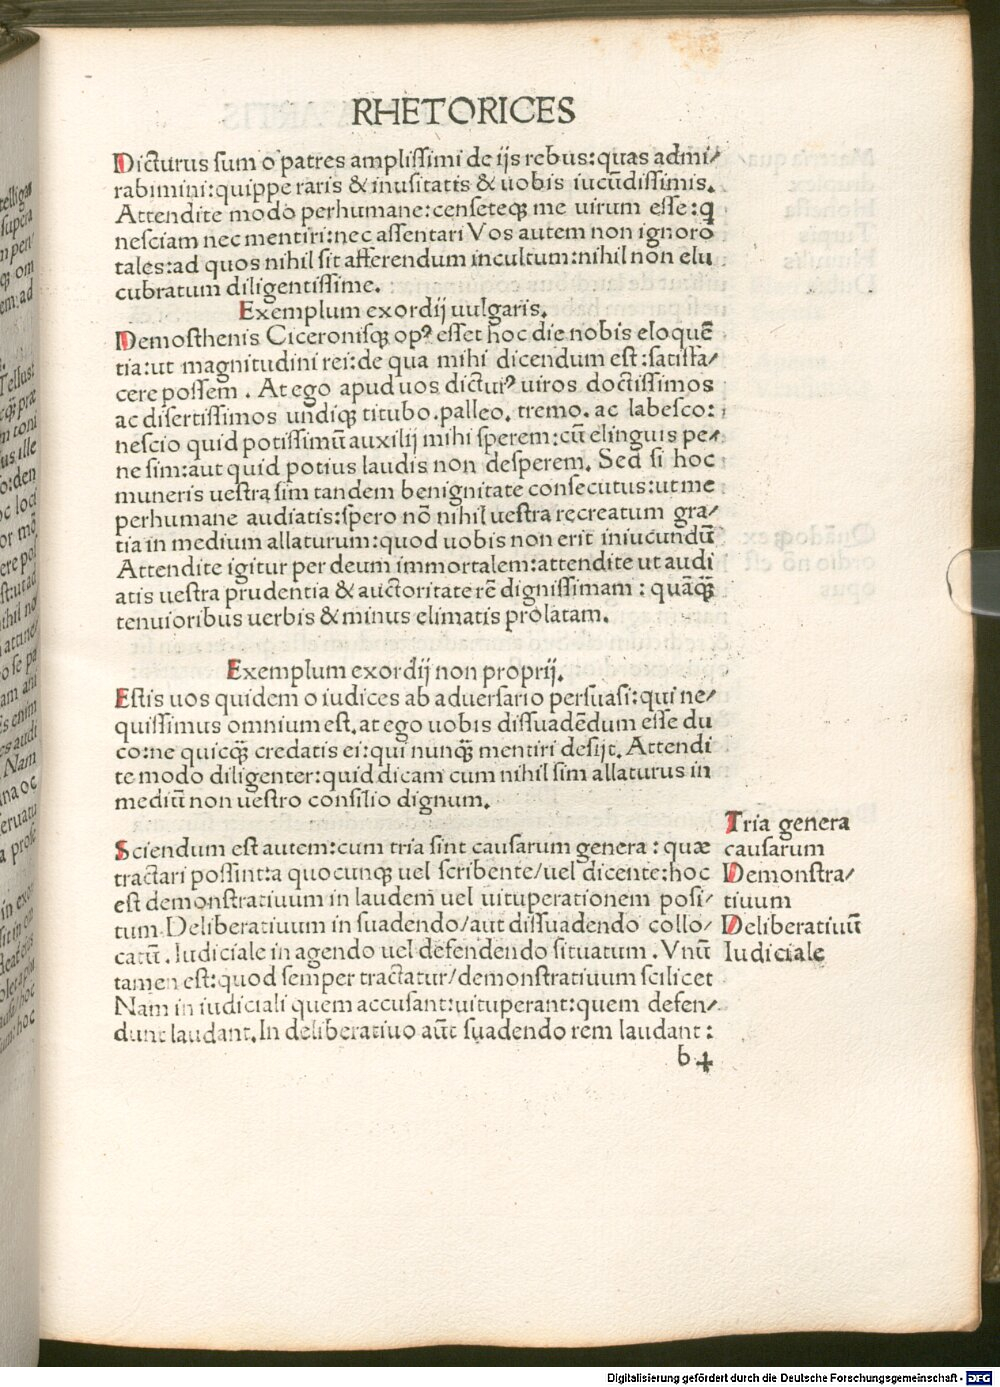 RHETORICES
Dicturus sum o patres amplissimi de ijs rebus: quas admi/
rabimini: quippe raris & inusitatis & uobis iucūdissimis.
Attendite modo perhumane: censeteqꝫ me uirum esse: q
nesciam nec mentiri: nec assentari Vos autem non ignoro
tales: ad quos nihil sit afferendum incultum: nihil non elu
cubratum diligentissime.
Exemplum exordij uulgaris.
Demosthenis Ciceronisqꝫ opꝰ esset hoc die nobis eloquē
tia: ut magnitudini rei: de qua mihi dicendum est: satisfa/
cere possem. At ego apud uos dicturꝰ uiros doctissimos
ac disertissimos undiqꝫ titubo. palleo. tremo. ac labesco:
nescio quid potissimū auxilij mihi sperem: cū elinguis pe/
ne sim: aut quid potius laudis non desperem. Sed si hoc
muneris uestra sim tandem benignitate consecutus: ut me
perhumane audiatis: spero nō nihil uestra recreatum gra/
tia in medium allaturum: quod uobis non erit iniucundū
Attendite igitur per deum immortalem: attendite ut audi
atis uestra prudentia & auctoritate rē dignissimam: quāqꝫ̄
tenuioribus uerbis & minus elimatis prolatam.
Exemplum exordij non proprij.
Estis uos quidem o iudices ab aduersario persuasi: qui ne/
quissimus omnium est. at ego uobis dissuadēdum esse du
co: ne quicqꝫ̄ credatis ei: qui nunqꝫ̄ mentiri desijt. Attendi
te modo diligenter: quid dicam cum nihil sim allaturus in
mediū non uestro consilio dignum.
Sciendum est autem: cum tria sint causarum genera: quæ
tractari possint: a quocunqꝫ uel scribente/uel dicente: hoc
est demonstratiuum in laudem uel uituperationem posi/
tum. Deliberatiuum in suadendo/aut dissuadendo collo/
catū. Iudiciale in agendo uel defendendo situatum. Vnū
tamen est: quod semper tractatur/demonstratiuum scilicet
Nam in iudiciali quem accusant: uituperant: quem defen/
dunt laudant. In deliberatiuo aūt suadendo rem laudant:
b 4
Tria genera
causarum
Demonstra/
tiuum
Deliberatiuū
Iudiciale
Digitalisierung gefördert durch die Deutsche Forschungsgemeinschaft - DFG